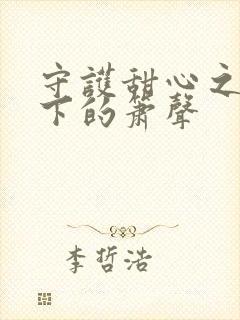 守護甜心之
下的簫聲
李哲浩